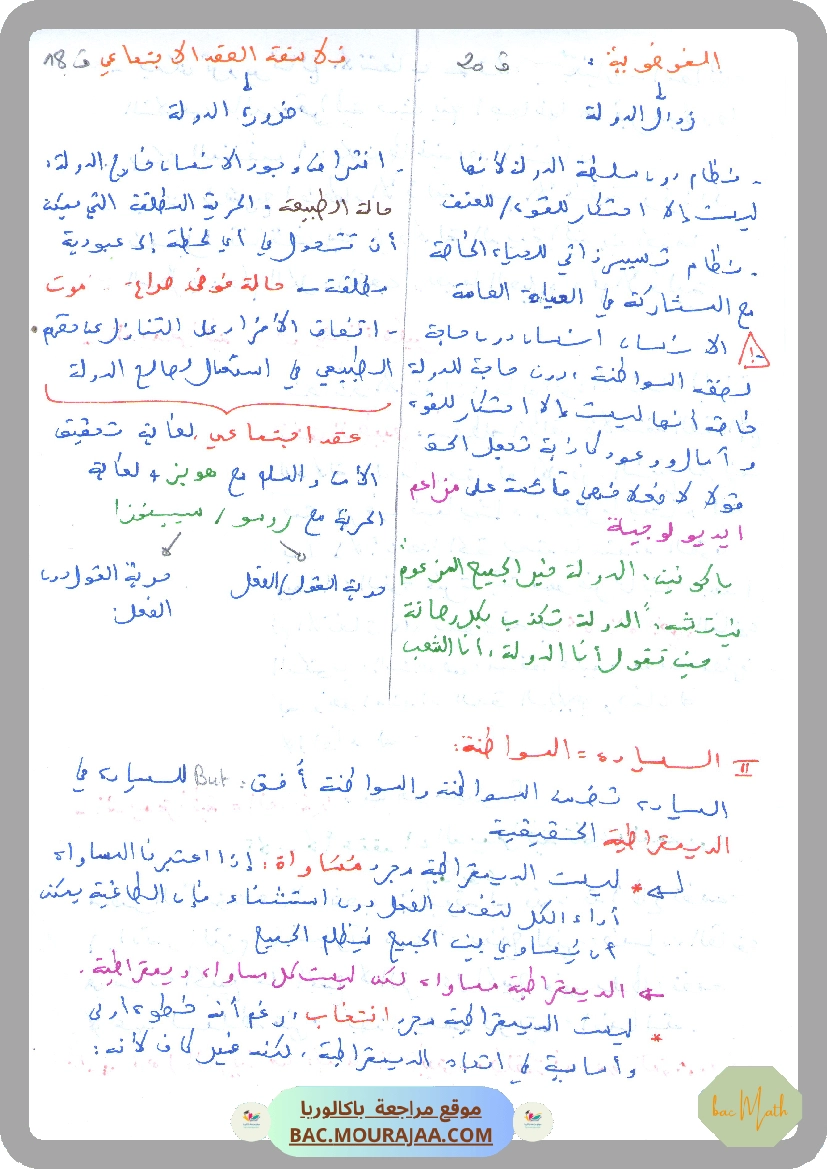 الفوضوية: ق 20
زوال الدولة
- نظام دون سلطة الدولة لأنها
ليست إلا احتكار للقوة / للعنف
- نظام تسيير ذاتي للحياة الخاصة
مع المشاركة في الحياة العامة
الإنسان إنسان دون حاجة
لصفة المواطنة، دون حاجة للدولة
خاصة أنها ليست إلا احتكار للقوة
و آمال ووعود كاذبة تجعل الحق
قولا لا فعلا فهي قائمة على مزاعم
ايديولوجية
باكونين: الدولة خير الجميع المزعوم
نيتشه: "الدولة تكذب بكل رصانة
حين تقول أنا الدولة، أنا الشعب
فلاسفة العقد الاجتماعي ق 18
ضرورة الدولة
- افتراض وجود الانسان خارج الدولة:
حالة الطبيعة. الحرية المطلقة التي يمكن
أن تتحول في أي لحظة إلى عبودية
مطلقة حالة فوضى صراع موت
- اتفاق الأفراد على التنازل عن حقهم
الطبيعي في استعمال لصالح الدولة
عقد اجتماعي لغاية تحقيق
الأمن والسلم مع هوبز و لغاية
الحرية مع روسو / سبينوزا
حرية القول/الفعل
حرية القول دون
الفعل
II السيادة = المواطنة:
السيادة تضمن المواطنة والمواطنة أفق: But للسيادة في
الديمقراطية الحقيقية
* ليست الديمقراطية مجرد مُسَاواة: إذا اعتبرنا المساواة
أداء الكل لنفس الفعل دون استثناء فإن الطاغية يمكن
أن يساوي بين الجميع فيظلم الجميع
← الديمقراطية مساواة لكن ليست كل مساواة ديمقراطية.
* ليست الديمقراطية مجرد انتخاب، رغم أنه خطوة أولى
وأساسية في اتجاه الديمقراطية، لكنه غير كاف لأنه:
موقع مراجعة باكالوريا
BAC.MOURAJAA.COM
bac Math